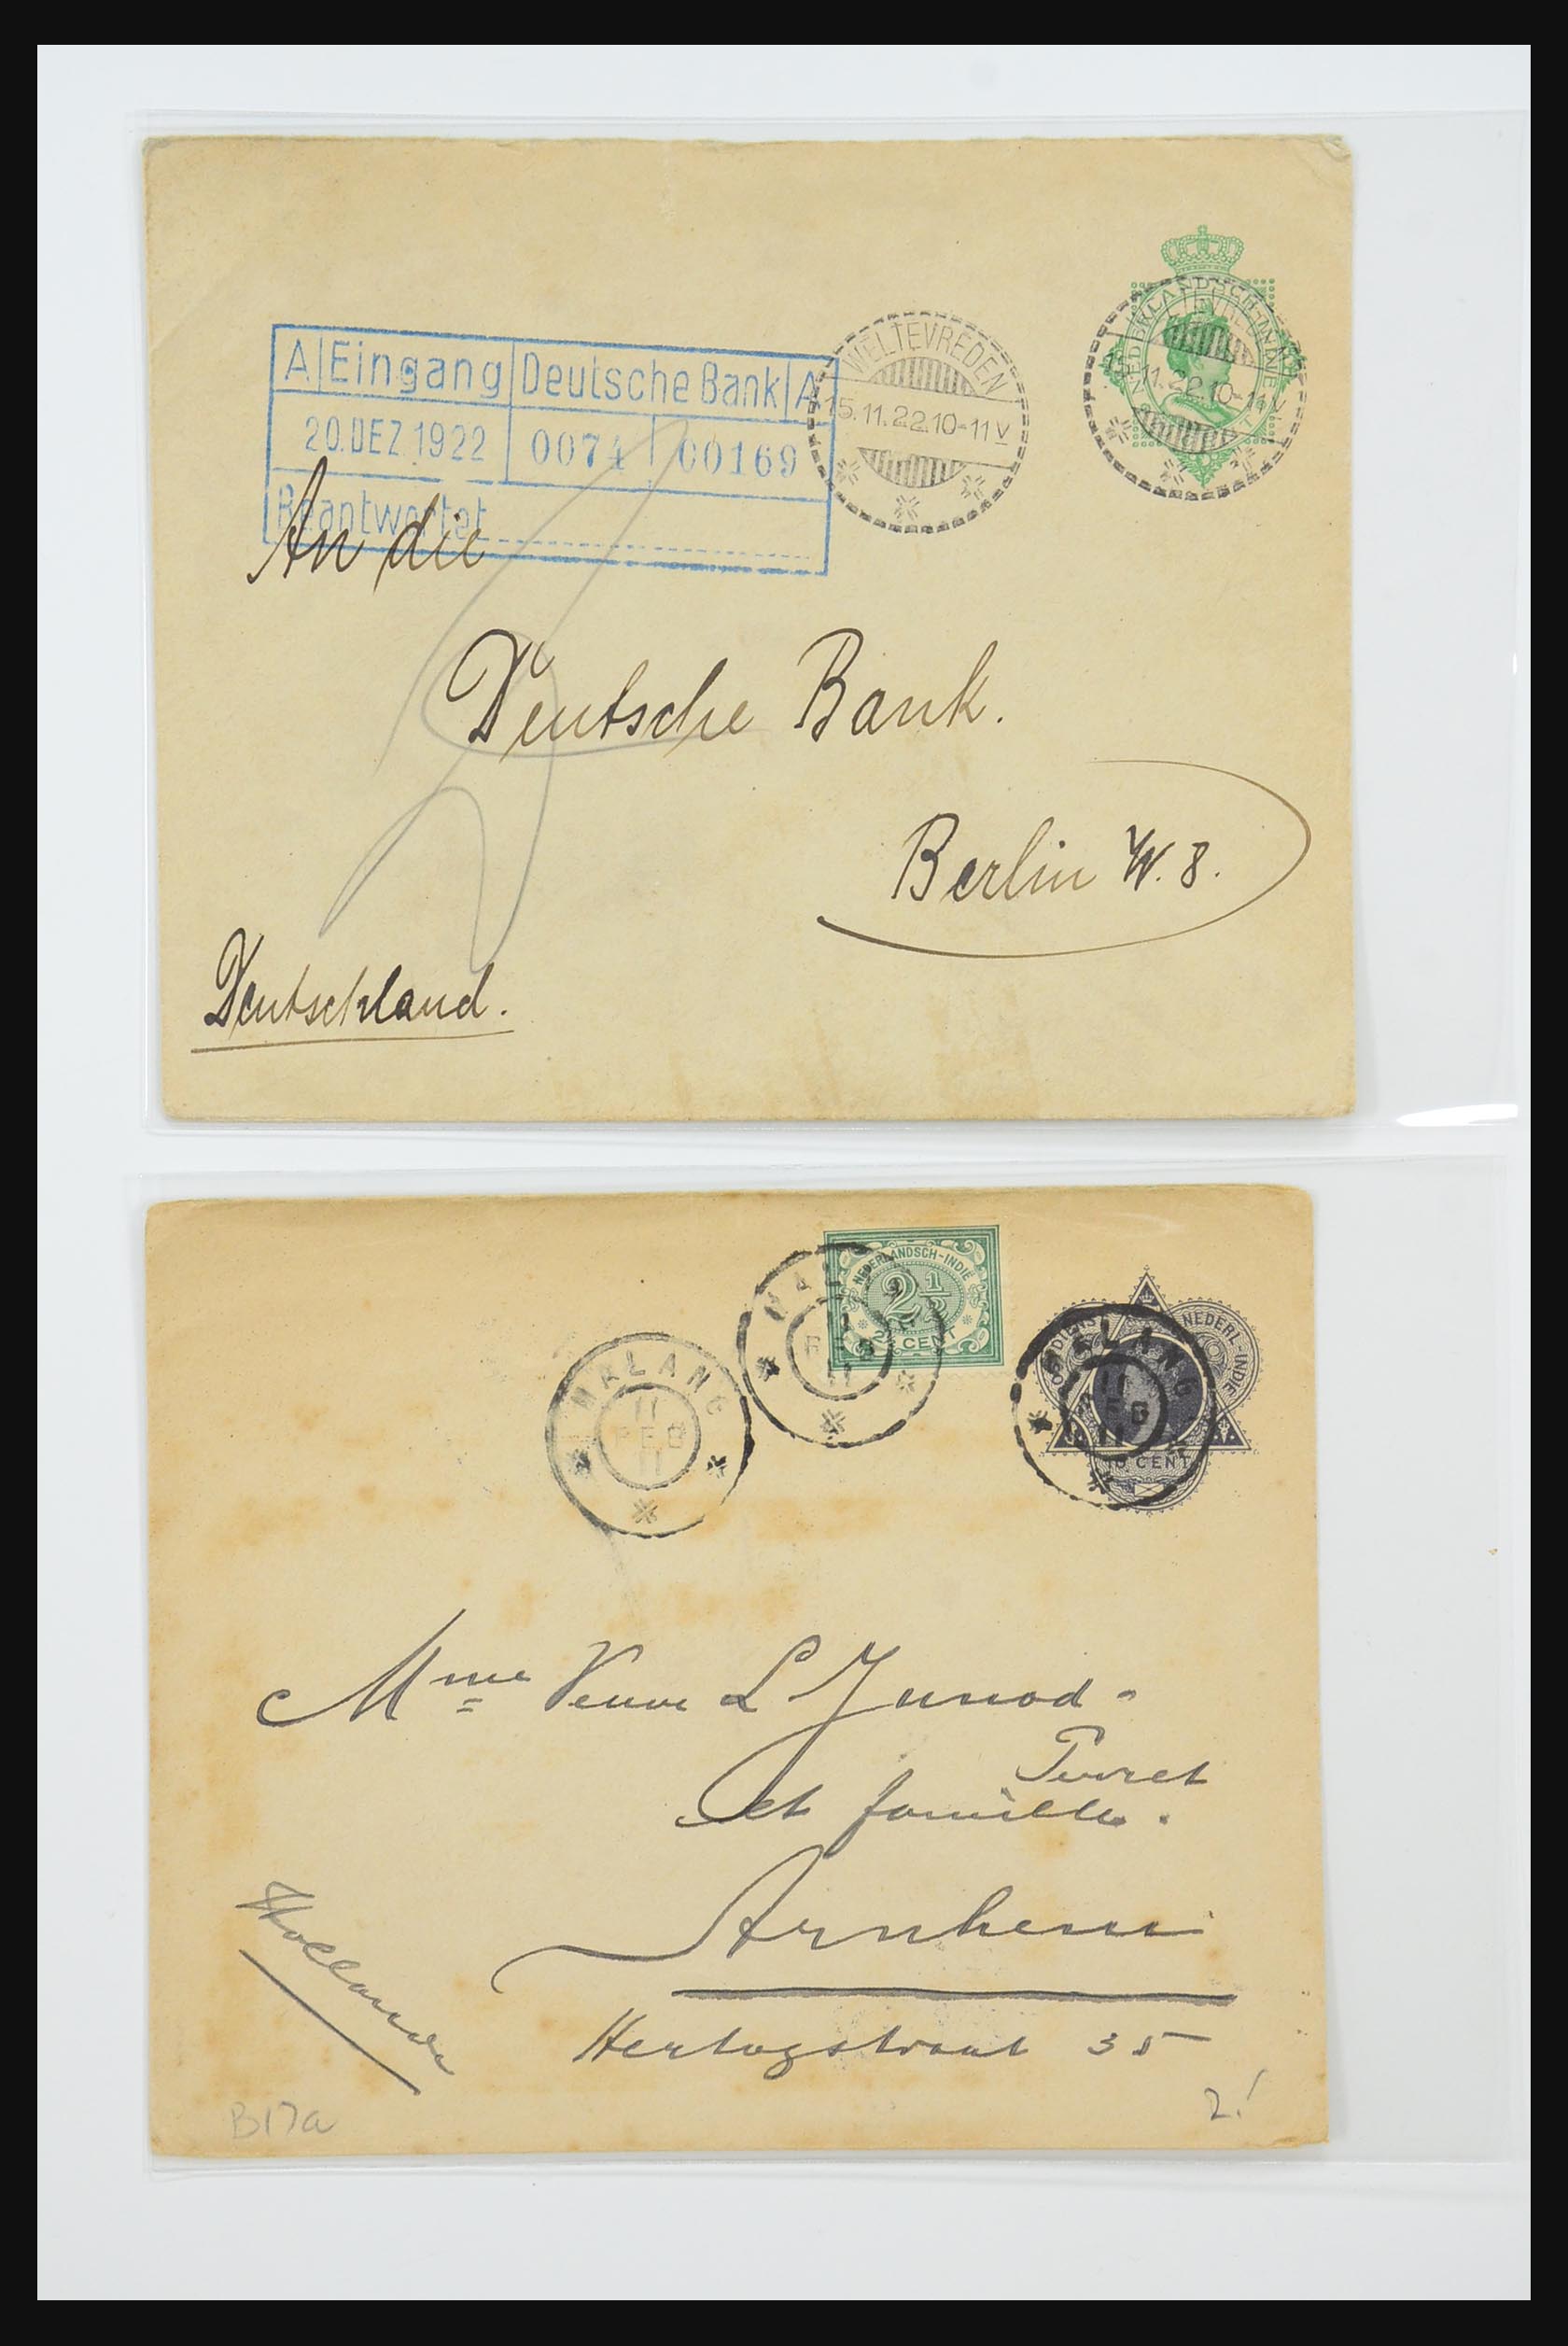 A Eingang Deutsche Bank A
20.DEZ.1922 0074 00169
Beantwortet
WELTEVREDEN
15.11.22.10-11V
NEDERLANDSCH-INDIE
11.22.10-11V
An die
Deutsche Bank.
Berlin W. 8.
Deutschland.
NEDERLANDSCH-INDIE
2 1/2
2½ CENT
MALANG
11
FEB
11
MALANG
11
FEB
11
NEDERL-INDIE
15 CENT
Mme Veuve L Junod-
Perret
et famille.
Arnhem
Hertogstraat 35
Hollande
B17a
2!